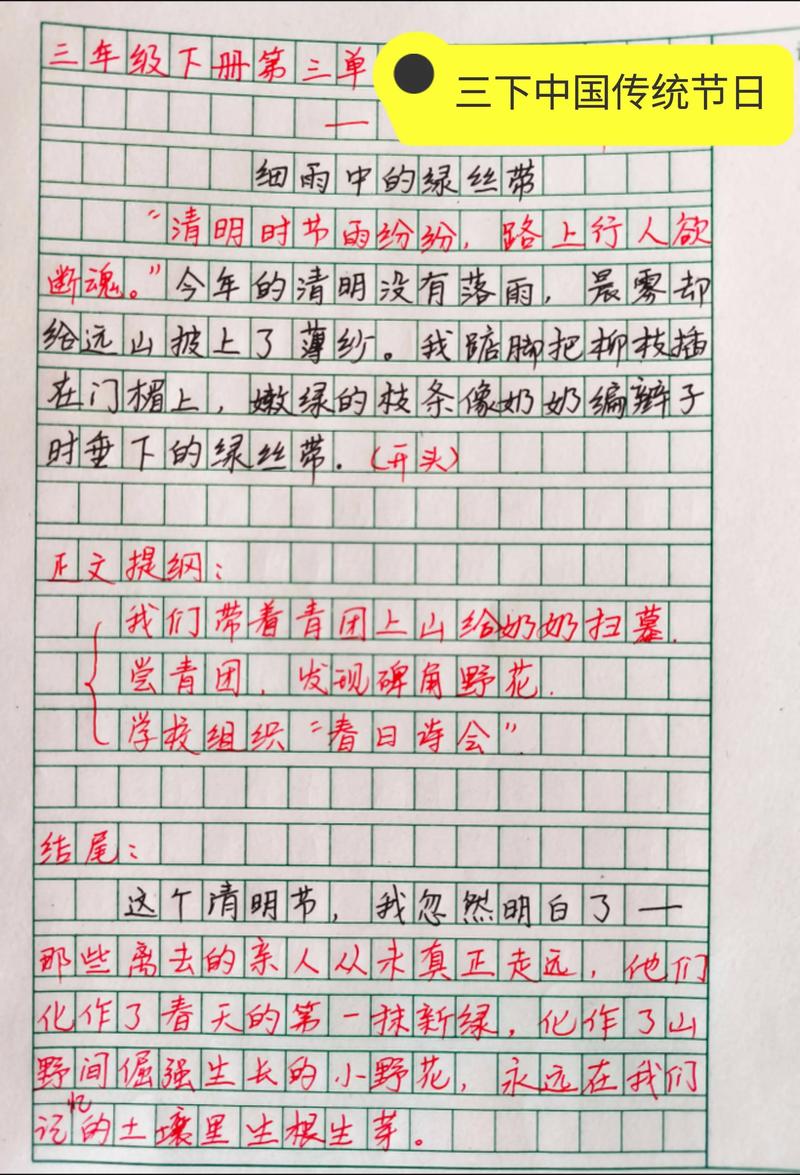 三年级下册第三单
三下中国传统节日
一
细雨中的绿丝带
“清明时节雨纷纷，路上行人欲
断魂。”今年的清明没有落雨，晨雾却
给远山披上了薄纱。我踮脚把柳枝插
在门楣上，嫩绿的枝条像奶奶编辫子
时垂下的绿丝带。（开头）
正文提纲：
我们带着青团上山给奶奶扫墓.
尝青团，发现碑角野花.
学校组织“春日诗会”
结尾：
这个清明节，我忽然明白了—
那些离去的亲人从未真正走远，他们
化作了春天的第一抹新绿，化作了山
野间倔强生长的小野花，永远在我们
记忆的土壤里生根生芽。